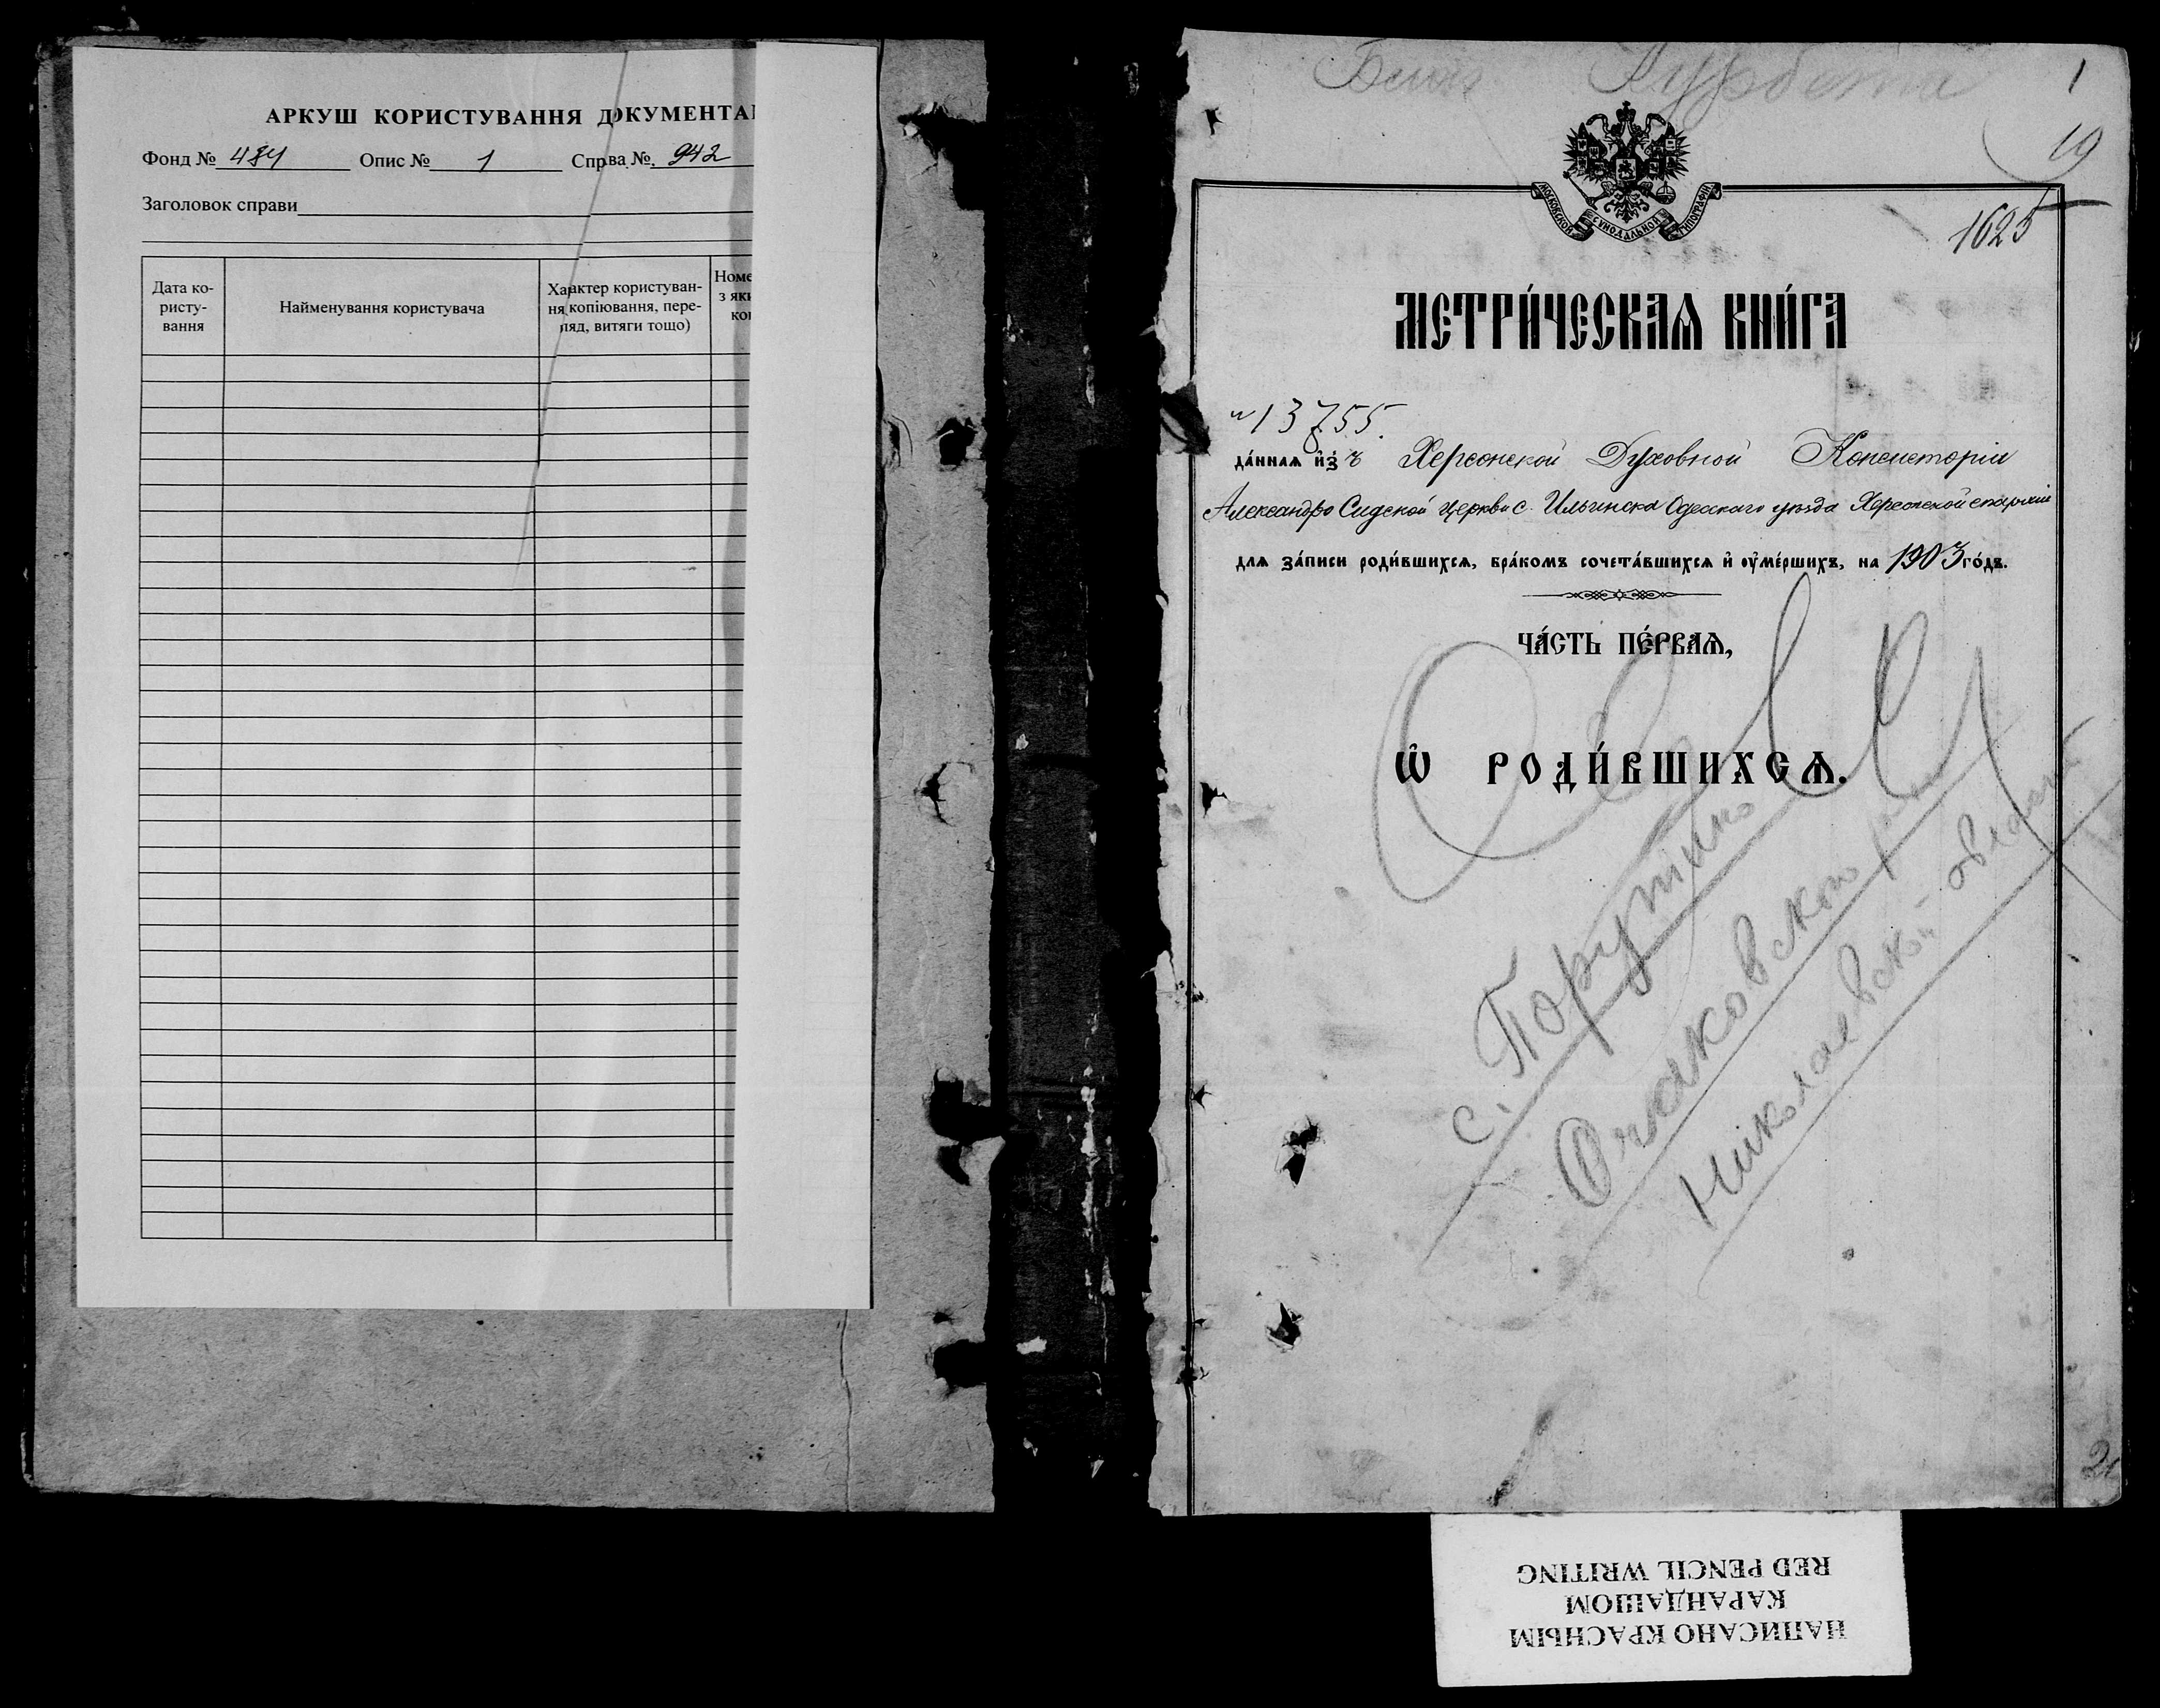 АРКУШ КОРИСТУВАННЯ ДОКУМЕНТА
Фонд № 484 Опис № 1 Справа № 942
Заголовок справи
Дата ко-
ристу-
вання
Найменування користувача
Характер користуван-
ня копіювання, пере-
ляд, витяги тощо)
Номе
з яки
ко
1
19
1625
МОСКОВСКОЙ СѴНОДАЛЬНОЙ ТИПОГРАФІИ
МЕТРИ́ЧЕСКАѦ КНИ́ГА
№ 13755.
да́ннаѧ и҆зъ Херсонской Духовной Консисторіи
Александро Сидской церкви с. Ильинска Одесскаго уѣзда Херсонской епархіи
длѧ за́писи роди́вшихсѧ, бра́комъ сочета́вшихсѧ и҆ оу҆ме́ршихъ, на 1903 го́дъ.
ЧА́СТЬ ПЕ́РВАѦ,
Ѽ РОДИ́ВШИХСѦ.
с. Порутино
Очаковского
Николаевской
НАПИСАНО КРАСНЫМ
КАРАНДАШОМ
RED PENCIL WRITING